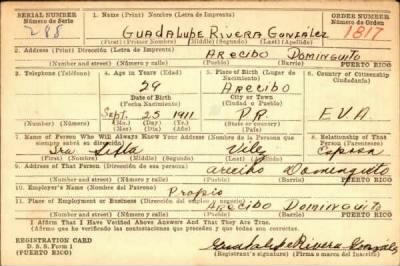 SERIAL NUMBER
Número de Serie
288
1. Name (Print) Nombre (Letra de Imprenta)
GUADALUPE RIVERA GONZALEZ
(First) (Primer Nombre) (Middle) (Segundo) (Last) (Apellido)
ORDER NUMBER
Número de Orden
1817
2. Address (Print) Dirección (Letra de Imprenta)
ARECIBO DOMINGUITO
(Number and street) (Número y calle) (Pueblo) (Barrio) PUERTO RICO
3. Telephone (Teléfono)
4. Age in Years (Edad)
29
Date of Birth
(Fecha Nacimiento)
Sept. 25 1911
(Mo.) (Day) (Yr.)
(Mes) (Día) (Año)
5. Place of Birth (Lugar de Nacimiento)
ARECIBO
City or Town
(Ciudad o Pueblo)
P.R.
(State or country)
6. Country of Citizenship
Ciudadanía)
E.V.A.
7. Name of Person Who Will Always Know Your Address (Nombre de la Persona que
siempre sabrá su dirección)
Sixta
(First) (Nombre) (Middle) (Segundo) (Last) (Apellido)
8. Relationship of That
Person (Parentesco)
Esposa
9. Address of That Person (Dirección de esa persona)
Arecibo Dominguito
(Number and street) (Número y calle) (Pueblo) (Barrio) PUERTO RICO
10. Employer's Name (Nombre del Patrono)
Propio
11. Place of Employment or Business (Dirección del empleo o negocio)
ARECIBO DOMINGUITO
(Number and street) (Número y calle) (Pueblo) (Barrio) PUERTO RICO
I Affirm That I Have Verified Above Answers And That They Are True.
(Afirmo que he verificado las contestaciones que preceden y que todas son correctas)
REGISTRATION CARD
D. S. S. Form 1
(PUERTO RICO)
Guadalupe Rivera Gonzalez
(Registrant's signature) (Firma o marca del inscrito)